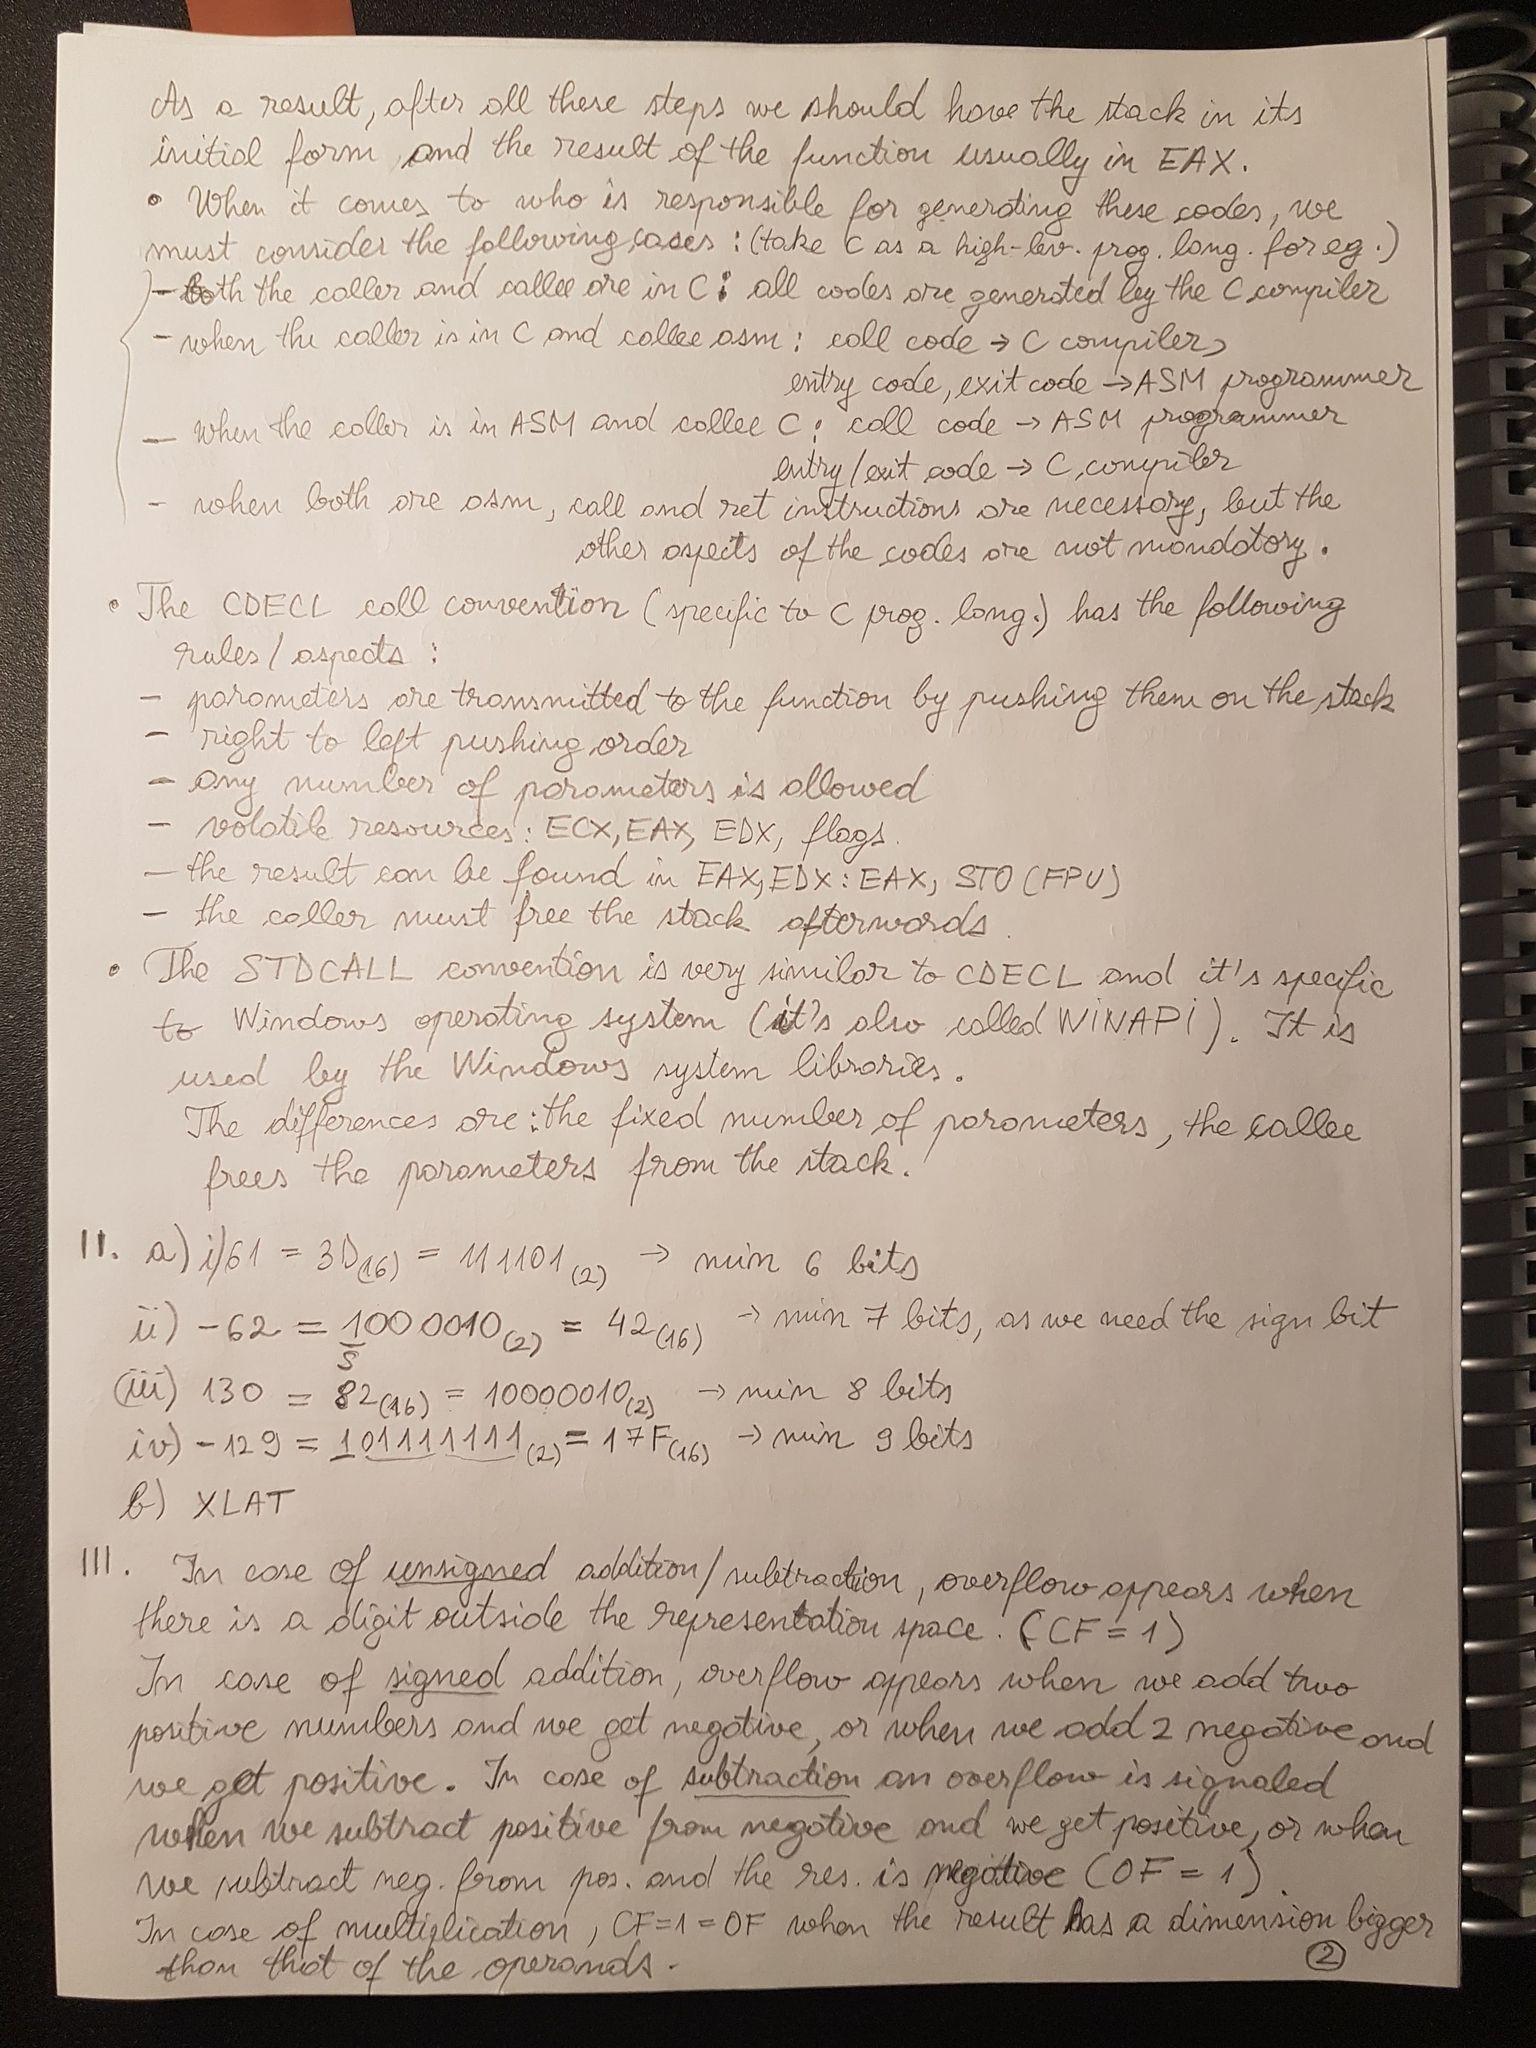 As a result, after all these steps we should have the stack in its
initial form, and the result of the function usually in EAX.
• When it comes to who is responsible for generating these codes, we
must consider the following cases : (take C as a high-lev. prog. lang. for eg.)
- both the caller and callee are in C : all codes are generated by the C compiler
- when the caller is in C and callee asm : call code → C compiler,
entry code, exit code → ASM programmer
- when the caller is in ASM and callee C : call code → ASM programmer
entry/exit code → C compiler
- when both are asm, call and ret instructions are necessary, but the
other aspects of the codes are not mandatory.
• The CDECL call convention (specific to C prog. lang.) has the following
rules/aspects :
- parameters are transmitted to the function by pushing them on the stack
- right to left pushing order
- any number of parameters is allowed
- volatile resources : ECX, EAX, EDX, flags.
- the result can be found in EAX, EDX : EAX, ST0 (FPU)
- the caller must free the stack afterwards.
• The STDCALL convention is very similar to CDECL and it's specific
to Windows operating system (it's also called WINAPI). It is
used by the Windows system libraries.
The differences are : the fixed number of parameters, the callee
frees the parameters from the stack.
II. a) i) 61 = 3D(16) = 111101(2) → min 6 bits
ii) -62 = 1000010(2) = 42(16) → min 7 bits, as we need the sign bit
S
(iii) 130 = 82(16) = 10000010(2) → min 8 bits
iv) -129 = 101111111(2) = 17F(16) → min 9 bits
b) XLAT
III. In case of unsigned addition/subtraction, overflow appears when
there is a digit outside the representation space. (CF = 1)
In case of signed addition, overflow appears when we add two
positive numbers and we get negative, or when we add 2 negative and
we get positive. In case of subtraction an overflow is signaled
when we subtract positive from negative and we get positive, or when
we subtract neg. from pos. and the res. is negative (OF = 1).
In case of multiplication, CF=1=OF when the result has a dimension bigger
than that of the operands.
2